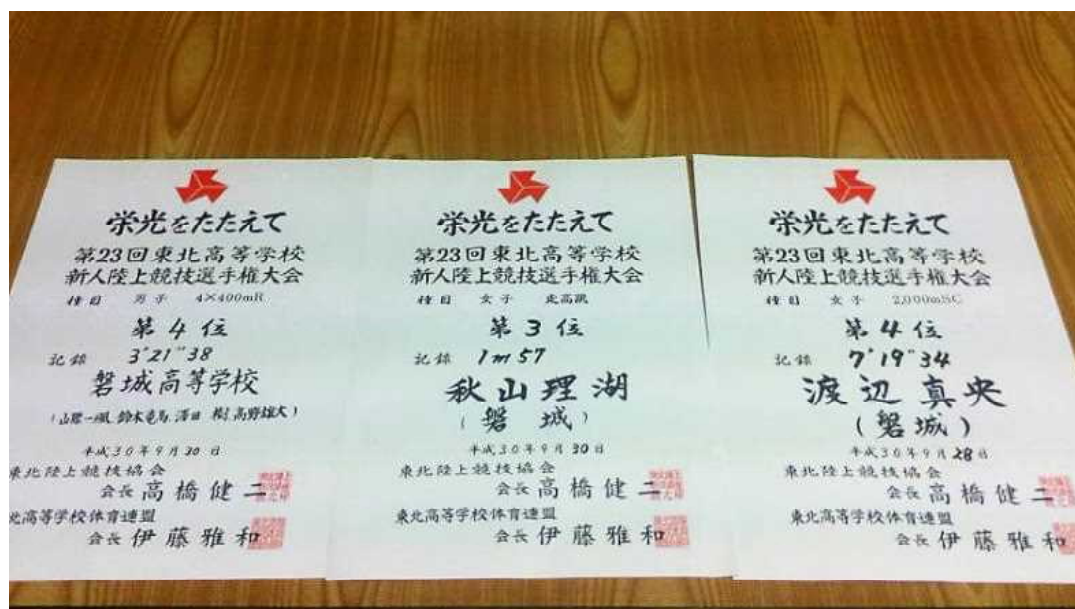 栄光をたたえて
第23回東北高等学校
新人陸上競技選手権大会
種目 男子 4×400mR
第4位
記録 3'21"38
磐城高等学校
鈴木竜馬 高野雄大)
平成30年9月30日
東北陸上競技協会
会長 高橋健二
北高等学校体育連盟
会長 伊藤雅和
栄光をたたえて
第23回東北高等学校
新人陸上競技選手権大会
種目 女子 走高跳
第3位
記録 1m57
秋山理湖
(磐城)
平成30年9月30日
東北陸上競技協会
会長 高橋健二
東北高等学校体育連盟
会長 伊藤雅和
栄光をたたえて
第23回東北高等学校
新人陸上競技選手権大会
種目 女子 2,000mSC
第4位
記録 7'19"34
渡辺真央
(磐城)
平成30年9月28日
東北陸上競技協会
会長 高橋健二
東北高等学校体育連盟
会長 伊藤雅和